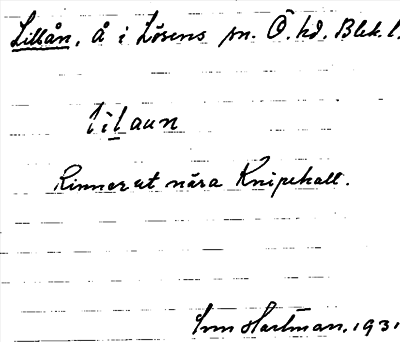 Lillån, Å i Lösens sn. Ö. hd. Blek. l.
lìlaun
Rinner ut nära Knipehall.
Hartman, 1931